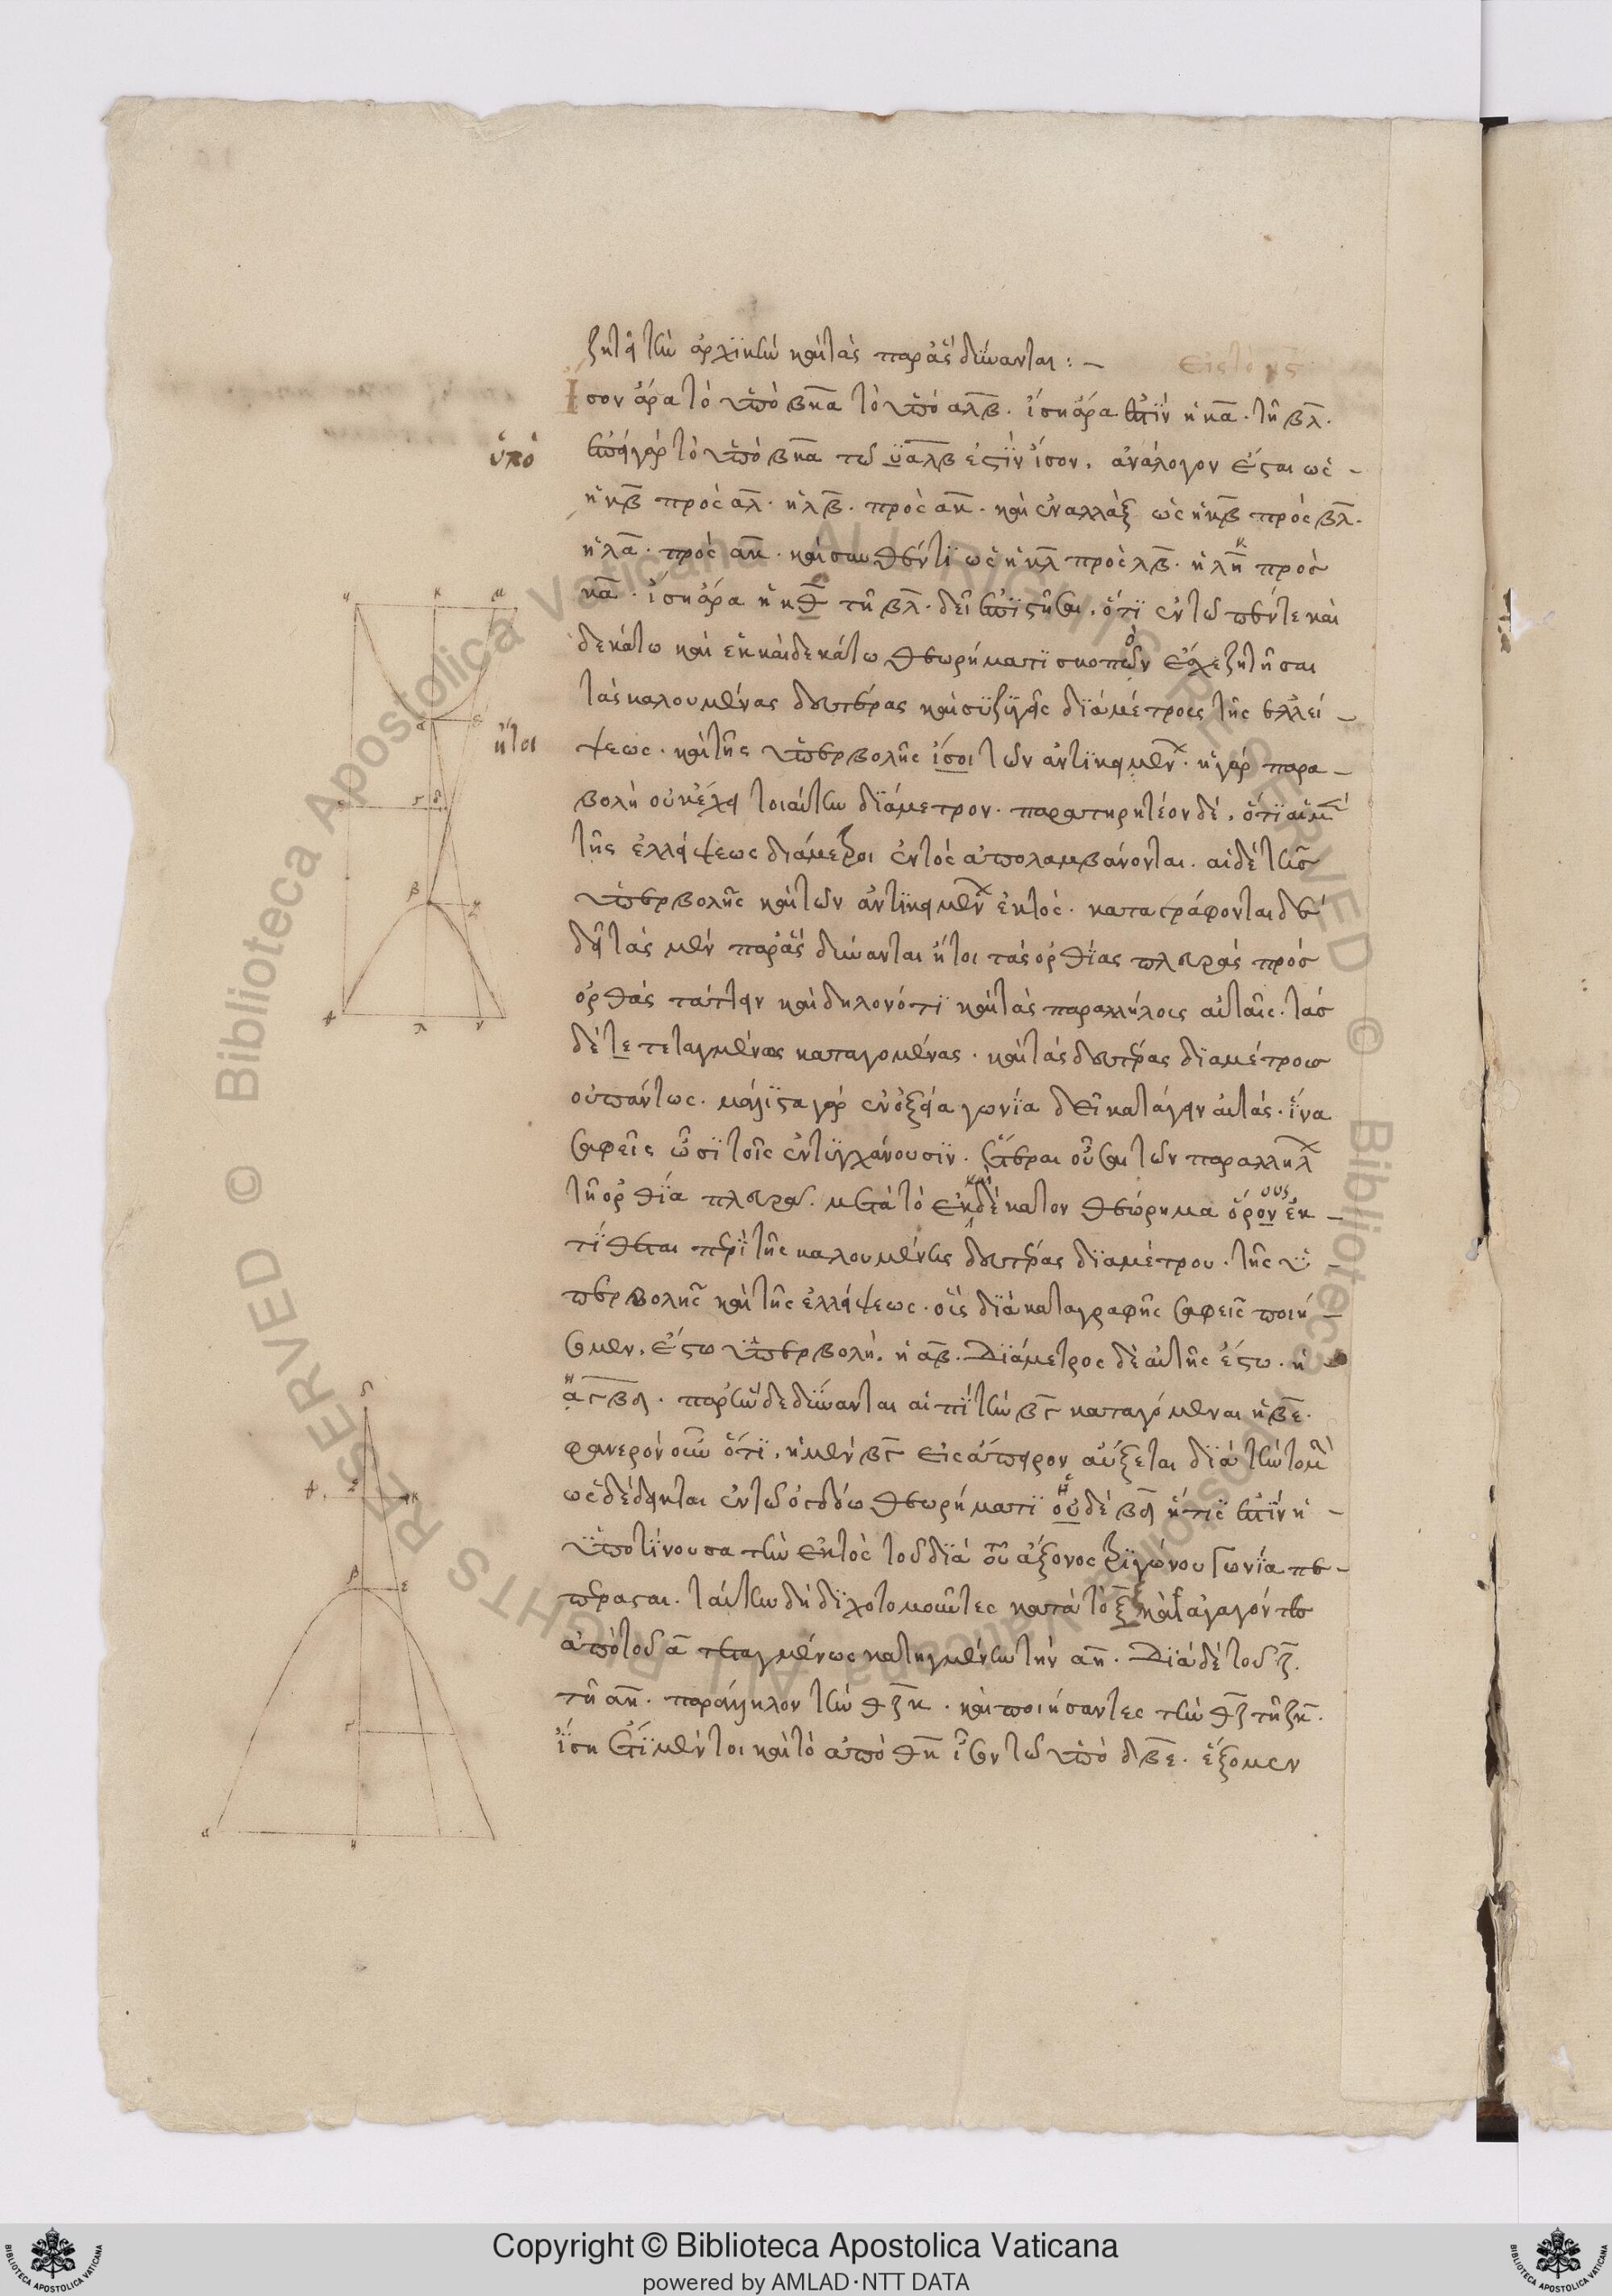 ζητεῖ τὴν ἀρχικὴν καὶ τὰς παρ' ἃς δύνανται : –
Εἰς τὸ
Ἴσον ἄρα τὸ ὑπὸ βκα τὸ ὑπὸ αλβ. ἴση ἄρα ἐστὶν ἡ κα. τῇ βλ.
ὑπὸ
ἐπεὶ γὰρ τὸ ὑπὸ βκα τῶ αλβ ἐστὶν ἴσον. ἀνάλογον ἔσται ὡς –
ἡ κβ πρὸς αλ. ἡ λβ. πρὸς ακ. καὶ ἐναλλὰξ ὡς ἡ κβ πρὸς βλ.
ἡ λα. πρὸς ακ. καὶ συνθέντι ὡς ἡ κλ πρὸς λβ. ἡ λκ πρὸς
κα. ἴση ἄρα ἡ κθ τῇ βλ. δεῖ ἐπιστῆσαι. ὅτι ἐν τῶ πέντε καὶ
δεκάτω καὶ ἑκκαιδεκάτω θεωρήματι σκοπὸν ἔσχε ζητῆσαι
τὰς καλουμένας δευτέρας καὶ συζυγεῖς διαμέτρους τῆς ἐλλεί –
ἤτοι
ψεως. καὶ τῆς ὑπερβολῆς ἴσοι τῶν ἀντικειμεν. ἡ γὰρ παρα –
βολὴ οὐκ ἔχει τοιαύτην διάμετρον. παρατηρητέον δέ. ὅτι αἱ μ
τῆς ἐλλείψεως διάμετροι ἐντὸς ἀπολαμβάνονται. αἱ δὲ τῆς
ὑπερβολῆς καὶ τῶν ἀντικειμεν ἐκτός. καταγράφονται δὲ
δεῖ τὰς μὲν παρ' ἃς δύνανται ἤτοι τὰς ὀρθίας πλευρὰς πρὸς
ὀρθὰς τάττειν καὶ δηλονότι καὶ τὰς παραλλήλους αὐταῖς. τὰς
δέ τε τεταγμένως καταγομένας. καὶ τὰς δευτέρας διαμέτρους
οὐ πάντως. μάλιστα γὰρ ἐν ὀξεία γωνία δεῖ κατάγειν αὐτάς. ἵνα
σαφεῖς ὦσι τοῖς ἐντυγχάνουσιν. ἕτεραι οὖσαι τῶν παραλληλ
τῇ ὀρθία πλευρᾶ. μετὰ τὸ ἑκκαιδέκατον θεώρημα ὅρον ους ἐκ –
τίθεται περὶ τῆς καλουμένης δευτέρας διαμέτρου. τῆς ὑ –
περβολῆς καὶ τῆς ἐλλείψεως. οὓς διὰ καταγραφῆς σαφεῖς ποιή –
σομεν. ἔστω ὑπερβολή. ἡ αβ. διάμετρος δὲ αὐτῆς ἔστω. ἡ
γβδ. παρ' ἣν δὲ δύνανται αἱ ἐπὶ τὴν βγ καταγόμεναι ἡ βε.
φανερὸν οὖν ὅτι. ἡ μὲν βγ εἰς ἄπειρον αὔξεται διὰ τὴν τομὴν
ὡς δέδεικται ἐν τῶ ὀγδόω θεωρήματι ἡ δὲ βδ ἥτις ἐστὶν ἡ –
ὑποτείνουσα τὴν ἐκτὸς τοῦ διὰ τοῦ ἄξονος τριγώνου γωνία πε –
πέρασται. ταύτην δὴ διχοτομοῦντες κατὰ τὸ ζ καὶ ἀγαγόντες
ἀπὸ τοῦ α τεταγμένως κατηγμένην τὴν αη. διὰ δὲ τοῦ ζ.
τῇ αη. παράλληλον τὴν θζκ. καὶ ποιήσαντες τὴν θζ τῇ ζκ.
ἴση ἔτι μέντοι καὶ τὸ ἀπὸ θκ ἴσον τῶ ὑπὸ δβε. ἕξομεν
Copyright © Biblioteca Apostolica Vaticana
powered by AMLAD·NTT DATA